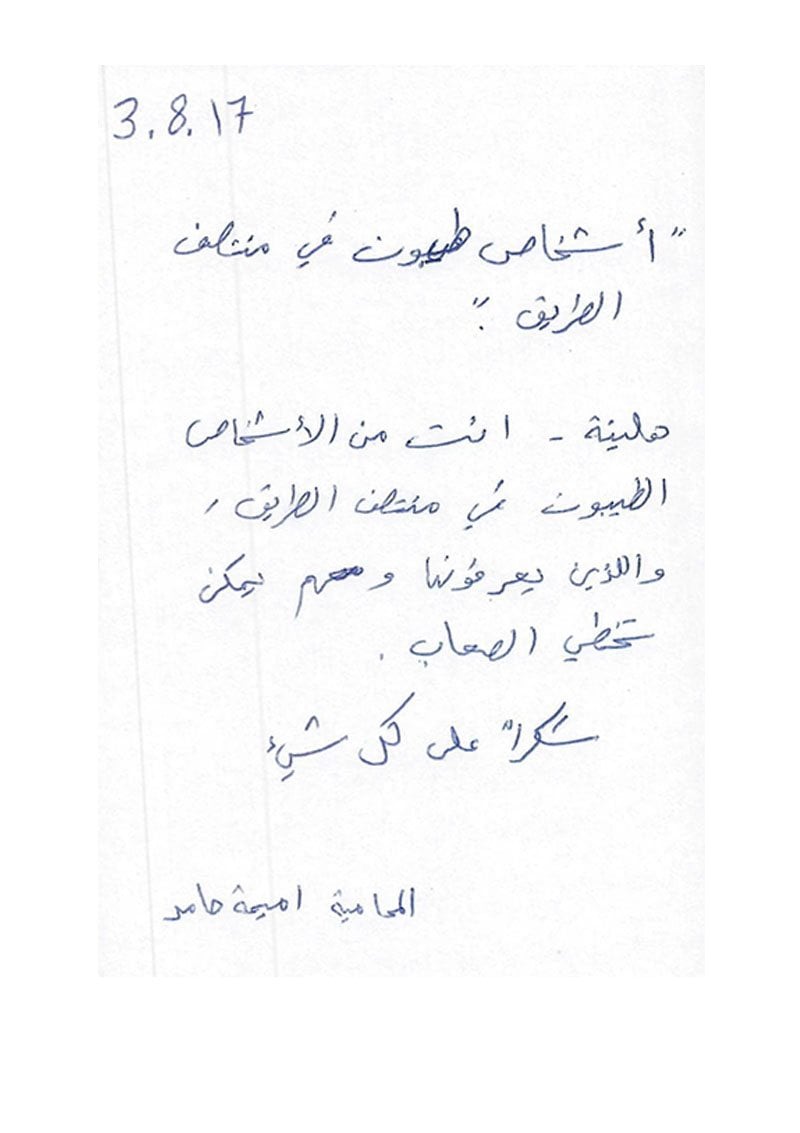 3.8.17
"أشخاص طيبون في منتصف
الطريق."
هلينة - انت من الأشخاص
الطيبون في منتصف الطريق,
واللذين يعرفوننا ومعهم يمكن
تخطي الصعاب.
شكراً على كل شيء
المحامية اميمة حامد